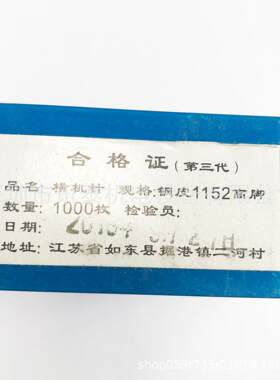 合格证(第三代)
品名:横机针 规格:钢皮1152高脚
数量:1000枚 检验员:
日期:
地址:江苏省如东县掘港镇二河村